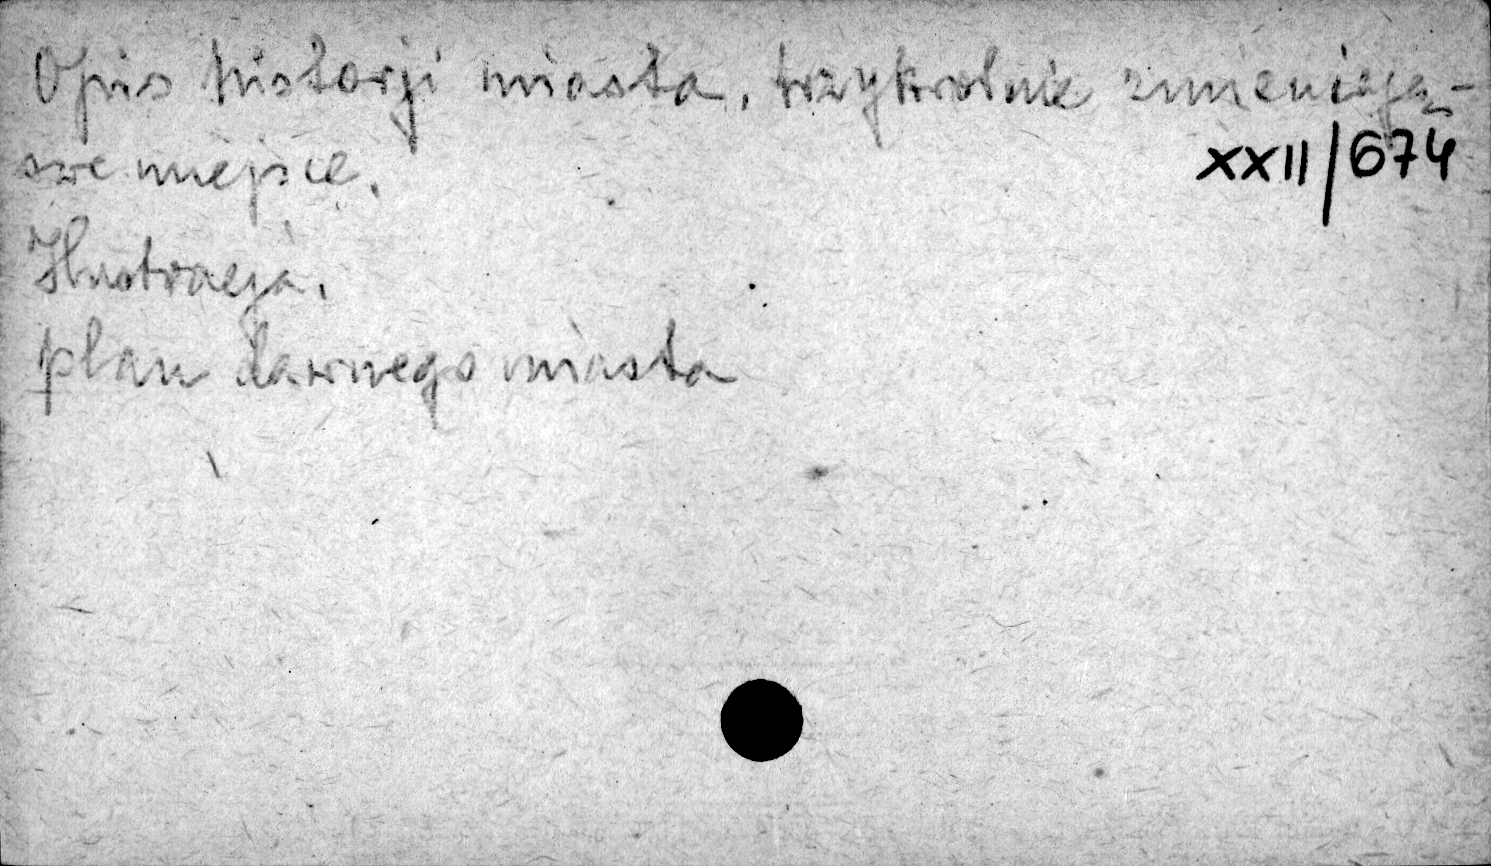 Opis historji miasta, trzykrotnie zmieniają-
swe miejsce.
XXII/674
Ilustracja.
plan dawnego miasta